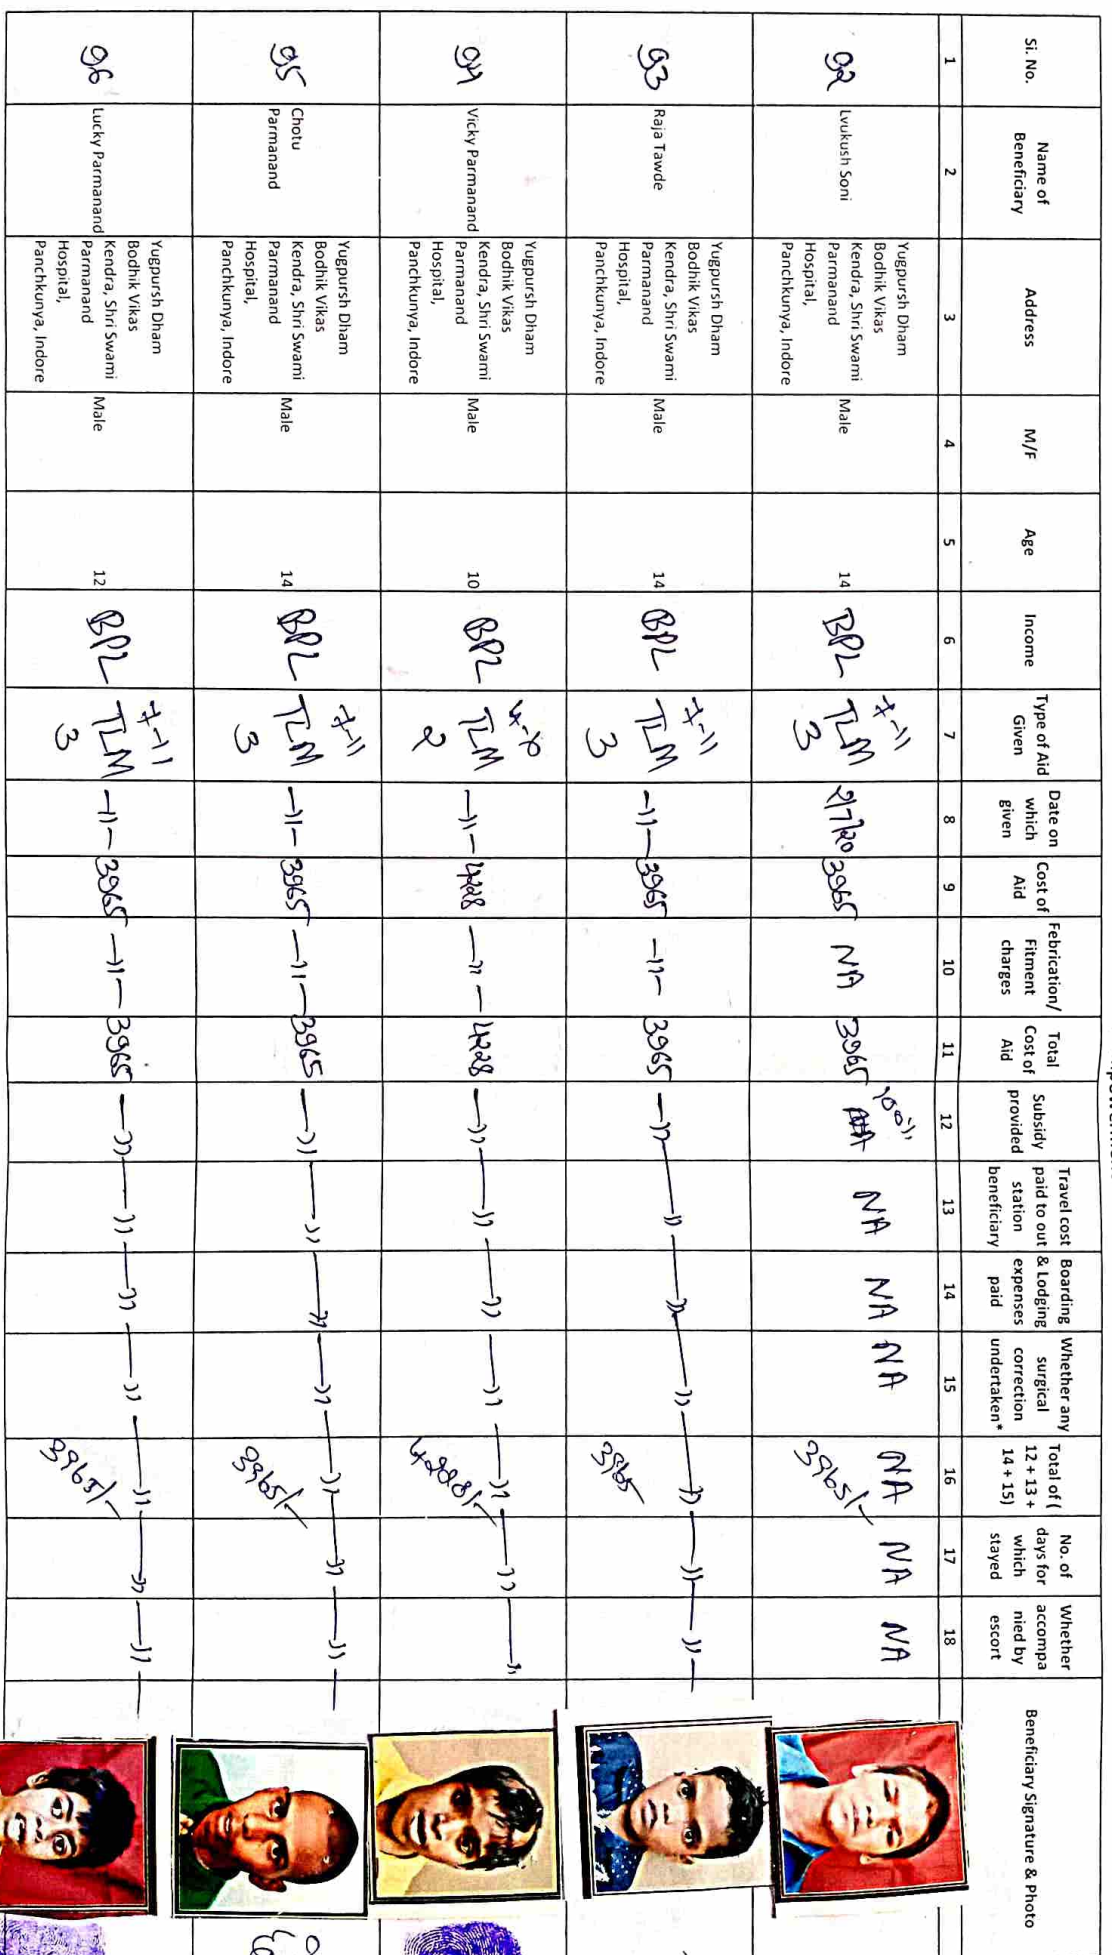 Si. No.
Name of
Beneficiary
Address
M/F
Age
Income
Type of Aid
Given
Date on
which
given
Cost of
Aid
Febrication/
Fitment
charges
Total
Cost of
Aid
Subsidy
provided
Travel cost
paid to out
station
beneficiary
Boarding
& Lodging
expenses
paid
Whether any
surgical
correction
undertaken*
Total of (
12 + 13 +
14 + 15)
No. of
days for
which
stayed
Whether
accompa
nied by
escort
Beneficiary Signature & Photo
1 2 3 4 5 6 7 8 9 10 11 12 13 14 15 16 17 18
92
Lvukush Soni
Yugpursh Dham
Bodhik Vikas
Kendra, Shri Swami
Parmanand
Hospital,
Panchkunya, Indore
Male
14
BPL
7-11
TLM
3
2/7/20
3965
NA
3965
100%
NA
NA
NA
NA
3965/-
NA
NA
93
Raja Tawde
Yugpursh Dham
Bodhik Vikas
Kendra, Shri Swami
Parmanand
Hospital,
Panchkunya, Indore
Male
14
BPL
7-11
TLM
3
-11-
3965
-11-
3965
-11-
-11-
-11-
-11-
-11-
3965
-11-
-11-
94
Vicky Parmanand
Yugpursh Dham
Bodhik Vikas
Kendra, Shri Swami
Parmanand
Hospital,
Panchkunya, Indore
Male
10
BPL
TLM
2
-11-
4228
-11-
4228
-11-
-11-
-11-
-11-
-11-
4228/-
-11-
-11-
95
Chotu
Parmanand
Yugpursh Dham
Bodhik Vikas
Kendra, Shri Swami
Parmanand
Hospital,
Panchkunya, Indore
Male
14
BPL
7-11
TLM
3
-11-
3965
-11-
3965
-11-
-11-
-11-
-11-
-11-
3965/-
-11-
-11-
96
Lucky Parmanand
Yugpursh Dham
Bodhik Vikas
Kendra, Shri Swami
Parmanand
Hospital,
Panchkunya, Indore
Male
12
BPL
7-11
TLM
3
-11-
3965
-11-
3965
-11-
-11-
-11-
-11-
-11-
3965/-
-11-
-11-